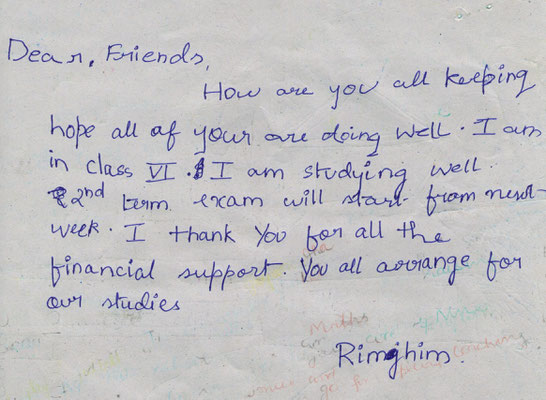 Dear, Friends,
How are you all keeping
hope all of your are doing well. I am
in class VI. I am studying well.
2nd term exam will start from next
week. I thank You for all the
financial support. You all arrange for
our studies
Rimjhim.